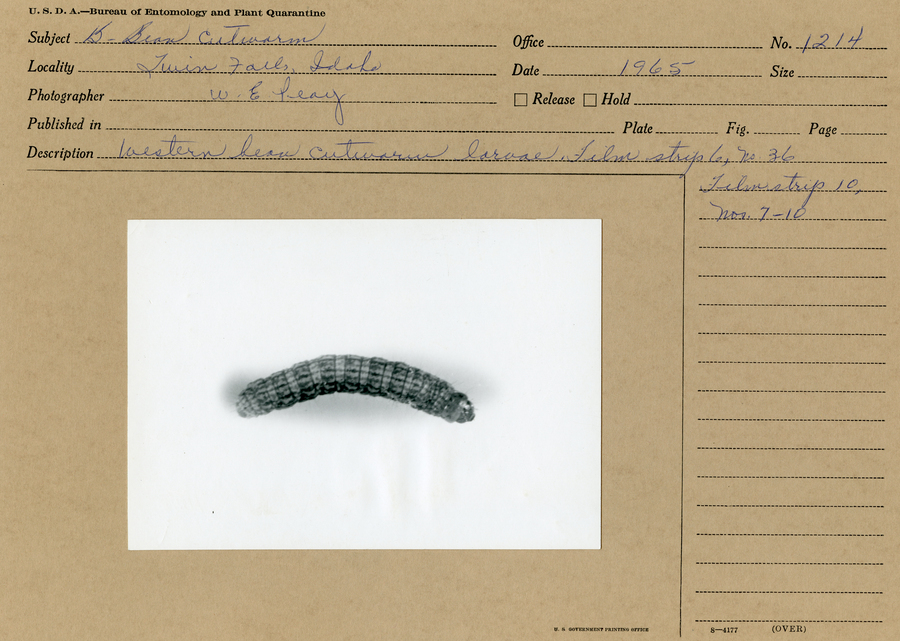 U. S. D. A.—Bureau of Entomology and Plant Quarantine
Subject B- Bean Cutworm Office No. 1214
Locality Twin Falls, Idaho Date 1965 Size
Photographer W. E. Peay Release Hold
Published in Plate Fig. Page
Description Western bean cutworm larvae. Film strip 6, No. 36
Film strip 10,
Nos. 7-10
U. S. GOVERNMENT PRINTING OFFICE 8—4177 (OVER)